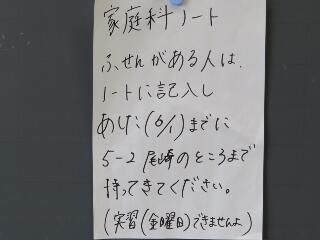 家庭科ノート
ふせんがある人は、
ノートに記入し
あした(6/1)までに
5-2 尾崎のところまで
持ってきてください。
(実習(金曜日)できませんよ)